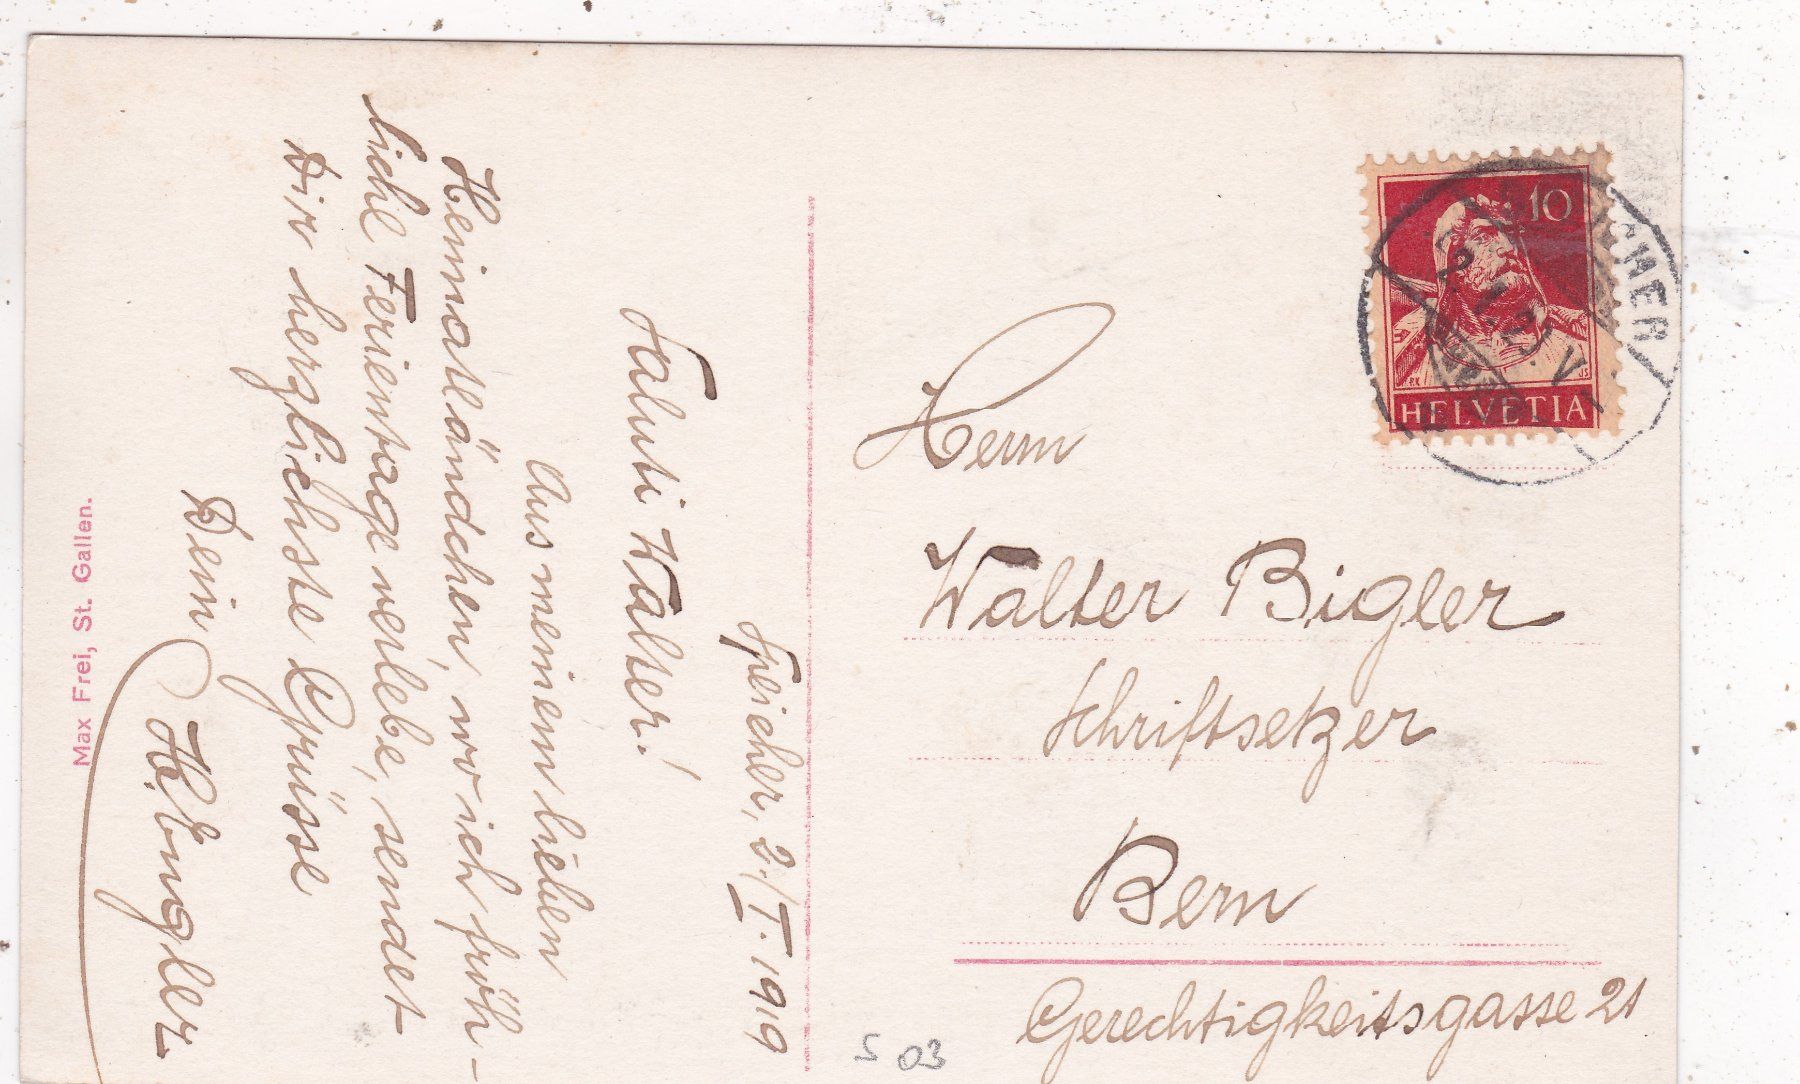 Speicher, 2./I. 1919
Saluti Walter!
Aus meinem lieben
Heimatländchen, wo ich fröh-
liche Ferientage verlebe, sendet
Dir herzlichste Grüsse
Dein
Max Frei, St. Gallen.
10
HELVETIA
Herrn
Walter Bigler
Schriftsetzer
Bern
Gerechtigkeitsgasse 21
S 03